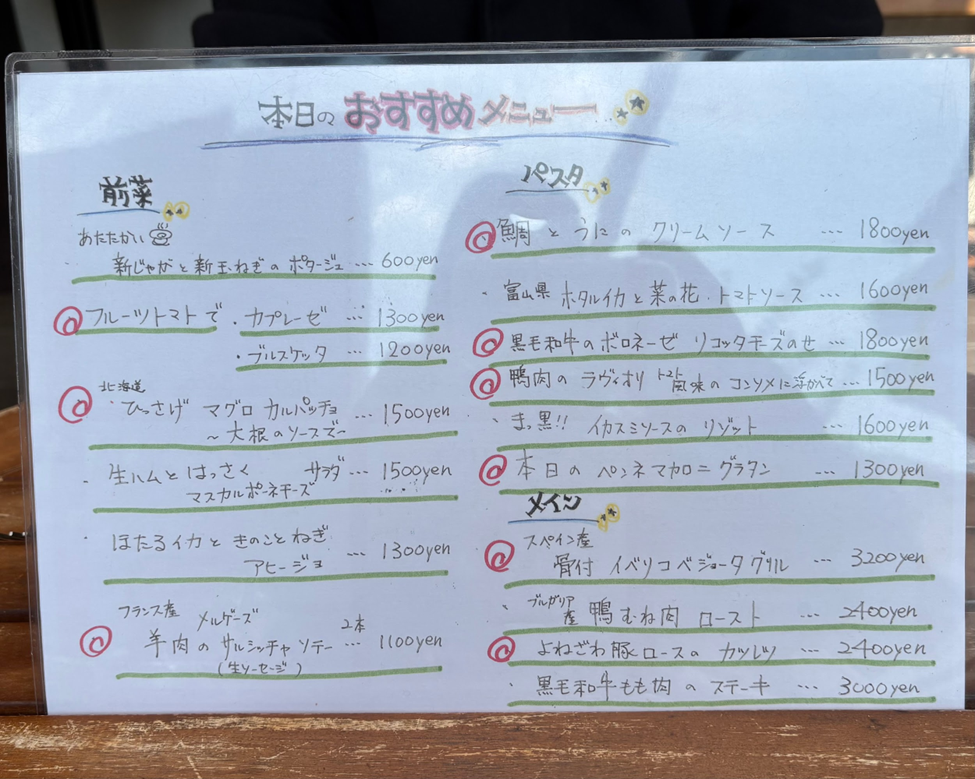 本日の おすすめ メニュー
前菜
あたたかい
新じゃがと新玉ねぎのポタージュ … 600yen
フルーツトマトで ・カプレーゼ … 1300yen
・ブルスケッタ … 1200yen
北海道
ひっさげ マグロ カルパッチョ … 1500yen
～大根のソースで～
・生ハムと はっさく サラダ … 1500yen
マスカルポーネチーズ
・ほたるイカと きのことねぎ
アヒージョ … 1300yen
フランス産 メルゲーズ
羊肉の サルシッチャ ソテー 2本 … 1100yen
(生ソーセージ)
パスタ
鯛とうにの クリームソース … 1800yen
・富山県 ホタルイカと菜の花・トマトソース … 1600yen
黒毛和牛のボロネーゼ リコッタチーズのせ … 1800yen
鴨肉の ラヴィオリ トマト風味の コンソメに浮かべて … 1500yen
・まっ黒!! イカスミソースの リゾット … 1600yen
本日の ペンネマカロニグラタン … 1300yen
メイン
スペイン産
骨付 イベリコベジョータグリル … 3200yen
・ブルガリア産 鴨むね肉 ロースト … 2400yen
よねざわ豚ロースの カツレツ … 2400yen
・黒毛和牛もも肉の ステーキ … 3000yen